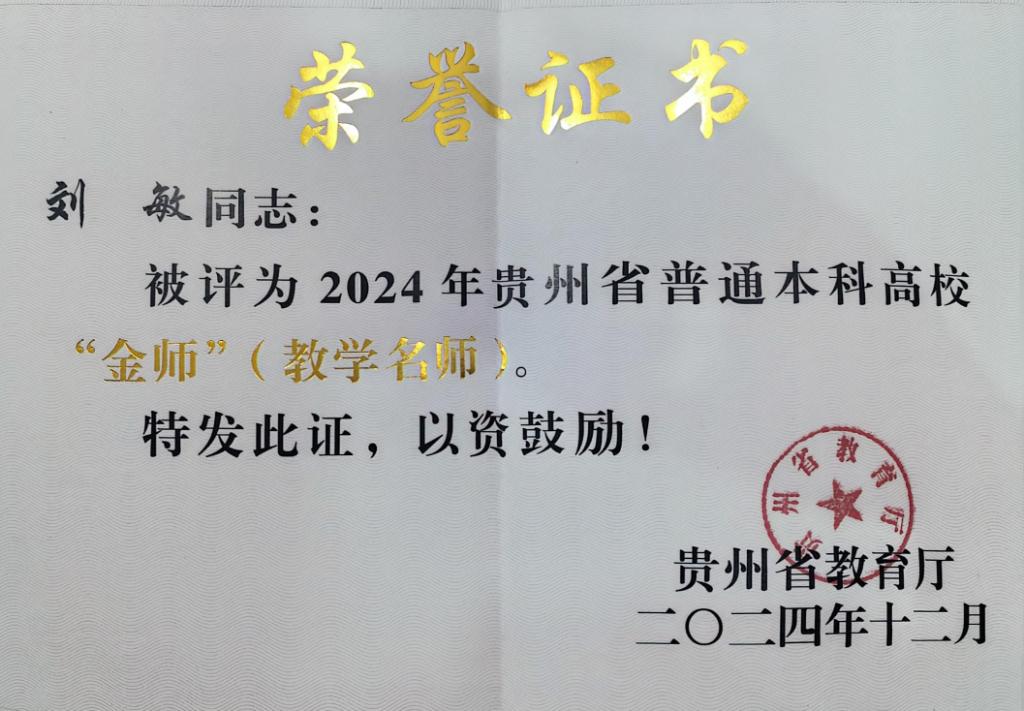 荣誉证书
刘 敏同志：
被评为2024年贵州省普通本科高校
“金师”（教学名师）。
特发此证，以资鼓励！
贵州省教育厅
贵州省教育厅
二〇二四年十二月